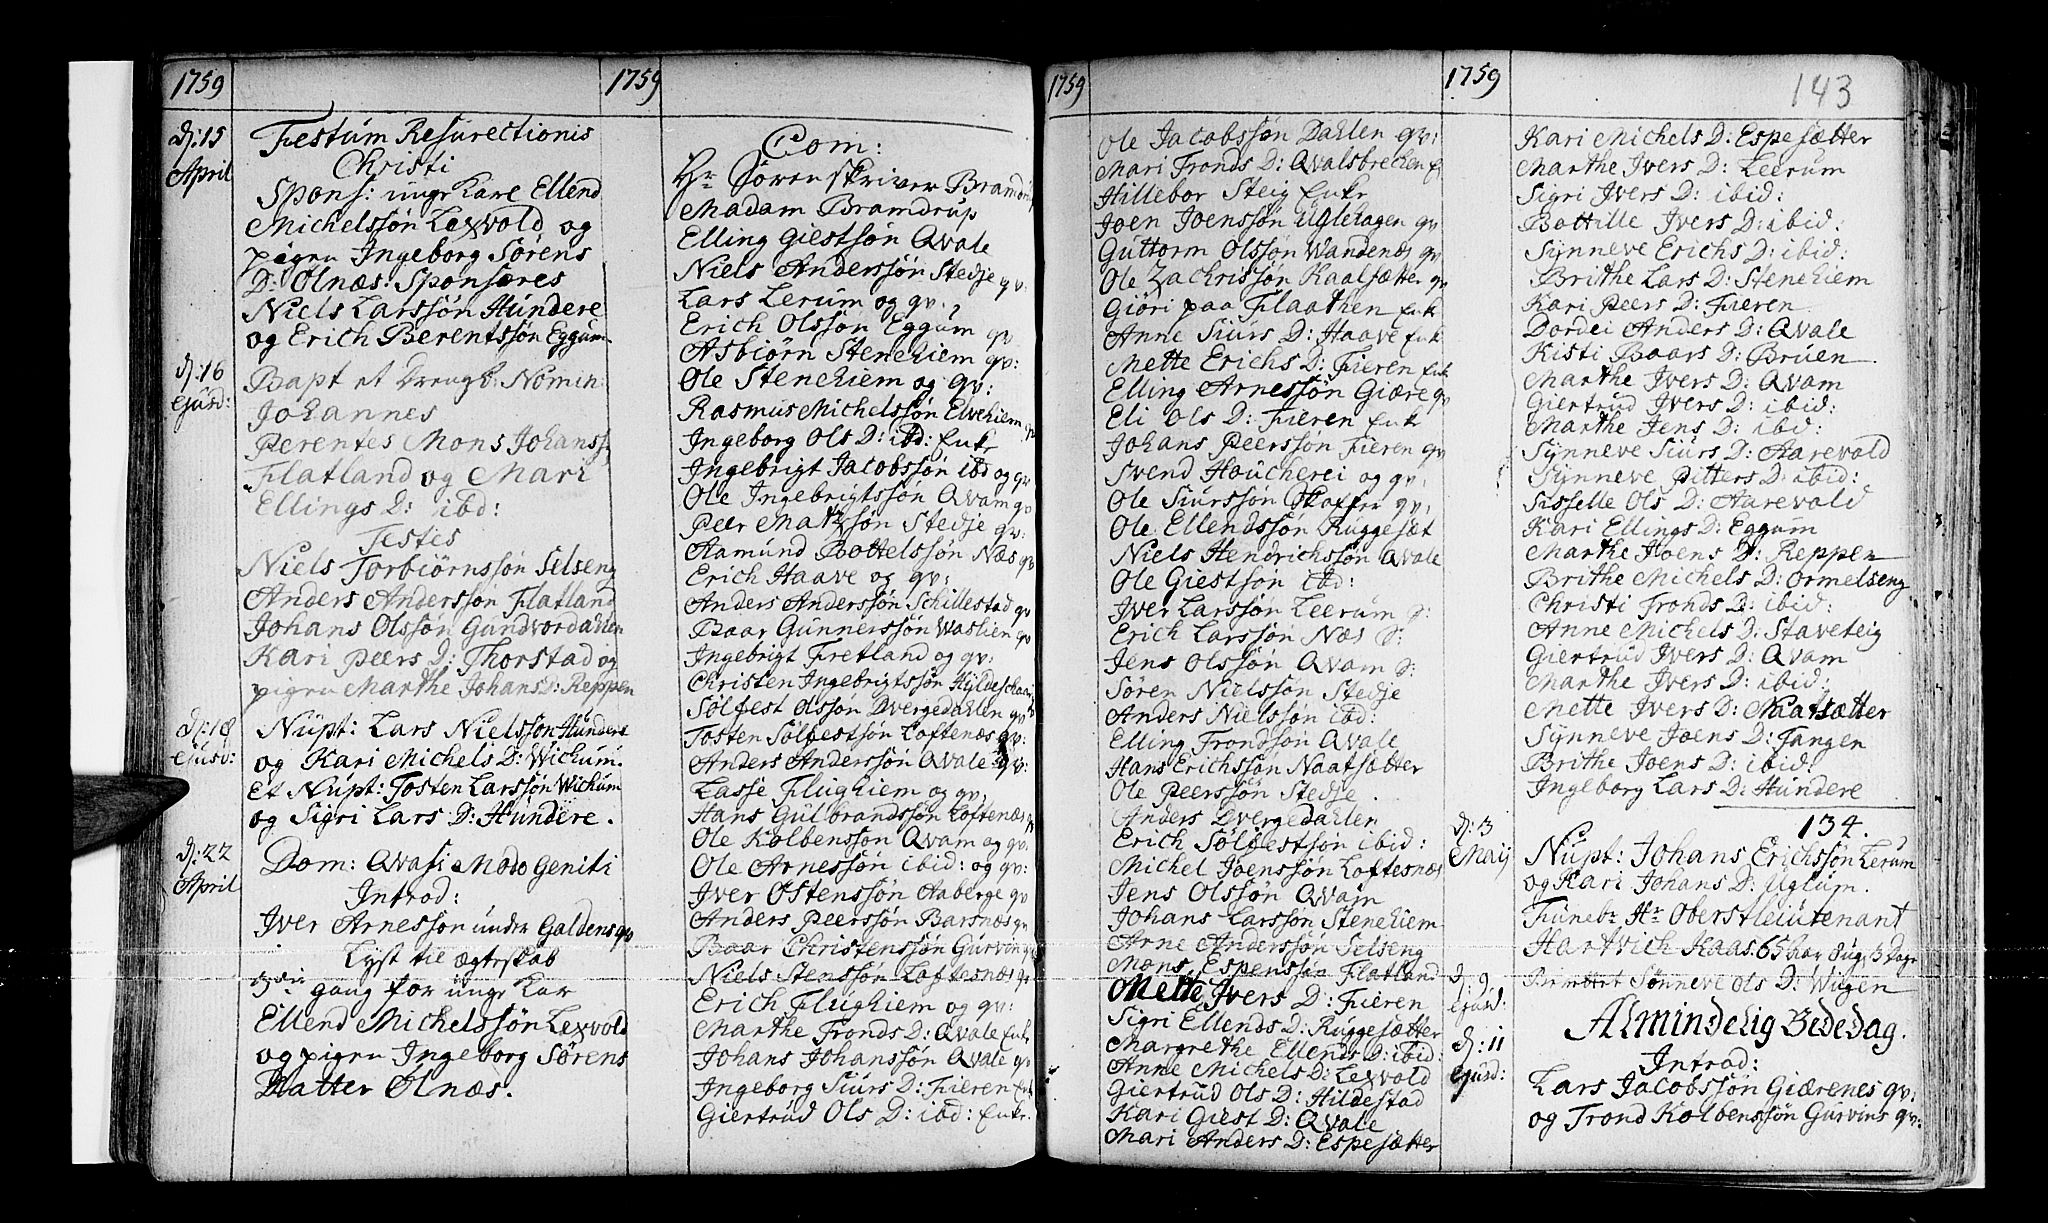 1759
d: 15
April
Festum Resurectionis
Christi
Spons: unge Karl Ellend
Michelssøn Lexvold og
pigen Ingeborg Sørens
D: Olnæs: Sponsores
Niels Larssøn Hundere
og Erich Berentssøn Eggum
d: 16
ejusd:
Bapt et Drengb: Nomin:
Johannes
Parentes Mons Johanss:
Flatland og Mari
Ellings D: ibd:
Testes
Niels Torbiörnssön Selseng
Anders Anderssøn Flatland
Johans Olssøn Gundvordahlen
Kari Peers D: Thorstad og
pigen Marthe Johans D: Reppen
d: 18
ejusd:
Nupt: Lars Nielssøn Hundere
og Kari Michels D: Wichum.
Et Nupt: Tosten Larssøn Wichum
og Sigri Lars D: Hundere.
d: 22
April
Dom: Qvasi Modo Geniti
Introd:
Iver Arnessøn under Galdens qv
Lyst til ægteskab
3die gang for unge Kar
Ellend Michelssøn Lexvold
og pigen Ingeborg Sørens
Datter Olnæs.
1759
Com:
Hr Søren skriver Bramdrup
Madam Bramdrup
Elling Giestsøn Qvale
Niels Anderssøn Stedje qv:
Lars Lerum og qv:
Erich Olssøn Eggum qv
Asbiörn Stenehiem qv:
Ole Stenehiem og qv:
Rasmus Michelssøn Elvehiem qv
Ingeborg Ols D: ibd: Enk
Ingebrigt Jacobssøn ibd og qv
Ole Ingebrigtssøn Qvam qv
Peer Matzsøn Stedje qv:
Aamund Bottelssøn Næs qv
Erich Haave og qv:
Anders Anderssøn Schillestad qv
Baar Gunnerssøn Waslien qv
Ingebrigt Fretland og qv:
Christen Ingebrigtssøn Hyldeschaar
Sølfest Olsson Dvergedahlen qv
Tosten Sølfestsøn Loftenæs qv:
Anders Anderssøn Qvale qv:
Lasse Flughiem og qv:
Hans Gulbrandssøn Loftenæs qv
Ole Kolbenssøn Qvam og qv:
Ole Arnessøn ibid: og qv:
Iver Ostenssøn Aaberge qv
Anders Peerssøn Barsnæs qv
Baar Christenssøn Gurvin qv
Niels Stenssøn Loftesnæs qv
Erich Flughiem og qv:
Marthe Tronds D: Qvale Enk
Johans Johanssøn Qvale qv
Ingeborg Siurs D: Fieren Enk
Giertrud Ols D: ibd: Enk:
1759
Ole Jacobssøn Dahlen qv:
Mari Tronds D: Qvalsbrechen E
Hillebor Steig Enk
Joen Joenssøn Uglehagen qv
Guttorm Olssøn Wandenes qv
Ole Zachrissøn Kaalsætter qv
Giöri paa Flaathen Enk
Anne Siurs D: Haave Enk
Mette Erichs D: Fieren Enk
Elling Arnessøn Giære qv
Eli Ols D: Fieren Enk
Johans Peerssøn Fieren qv
Svend Houcherei og qv:
Ole Siurssøn Skaffer qv:
Ole Ellendssøn Ruggesæt
Niels Hendrichssøn Qvale
Ole Giestsøn ibd:
Iver Larssøn Leerum D:
Erich Larssøn Næs D:
Jens Olssøn Qvam D:
Søren Nielssøn Stedje
Anders Nielssøn ibd:
Elling Trondsøn Qvale
Hans Erichssøn Naatsætter
Ole Peerssøn Stedje
Anders Dvergedahlen
Erich Sølfestsøn ibid:
Michel Joenssøn Loftesnæs
Jens Olssøn Qvam
Johans Larssøn Stenehiem
Arne Anderssøn Selseng
Mons Espenssøn Flatland
Mette Ivers D: Fieren
Sigri Ellends D: Ruggesætter
Margrethe Ellends D: ibid:
Anne Michels D: Lexvold
Giertrud Ols D: Hildestad
Kari Giest D: Qvale
Mari Anders D: Espesætter
1759
143
Kari Michels D: Espesætter
Marthe Ivers D: Leerum
Sigri Ivers D: ibid:
Bottille Ivers D: ibid:
Synneve Erichs D: ibid:
Brithe Lars D: Stenehiem
Kari Peers D: Fieren
Dordei Anders D: Qvale
Kisti Baars D: Bruen
Marthe Ivers D: Qvam
Giertrud Ivers D: ibid:
Marthe Jens D: ibd:
Synneve Siurs D: Aarevold
Synneve Pitters D: ibid:
Sisselle Ols D: Aarevold
Kari Ellings D: Eggum
Marthe Joens D: Reppen
Brithe Michels D: Ormelseng
Christi Tronds D: ibid:
Anne Michels D: Staveteig
Giertrud Ivers D: Qvam
Marthe Ivers D: ibid:
Mette Ivers D: Naatsætter
Synneve Joens D: Tangen
Brithe Joens D: ibid:
Ingeborg Lars D: Hundere
134.
d: 3
Maij
Nupt: Johans Erichssøn Lerum
og Kari Johans D: Uglum.
Funebr Hr Oberstleiutenant
Hartvich Kaas. 65 aar 8 ug 3 Dage
d: 9
ejusd:
Sønneve Ols D: Wigen
d: 11
ejusd:
Almindelig Bededag.
Introd:
Lars Jacobssøn Giærenes qv:
og Trond Kolbenssøn Gurvins qv: